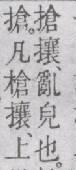 搶攘、亂兒也。
搶。凡槍攘、上